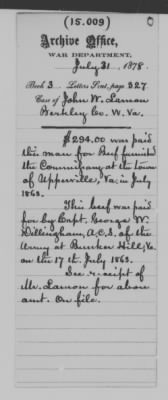 (15.009)
Archive Office,
WAR DEPARTMENT,
July 31, 1878.
Book 3 Letters Sent, page 327
Case of John W. Lamon
Berkley Co. W. Va.
$294.00 was paid
this man for Beef furnished
the Commissary at the town
of Upperville, Va; in July
1863.
This beef was paid
for by Capt. George W.
Dillingham, A.C.S. of the
Army at Bunker Hill, Va.
on the 17th July 1863.
See receipt of
Mr. Lamon for above
amt. On file.